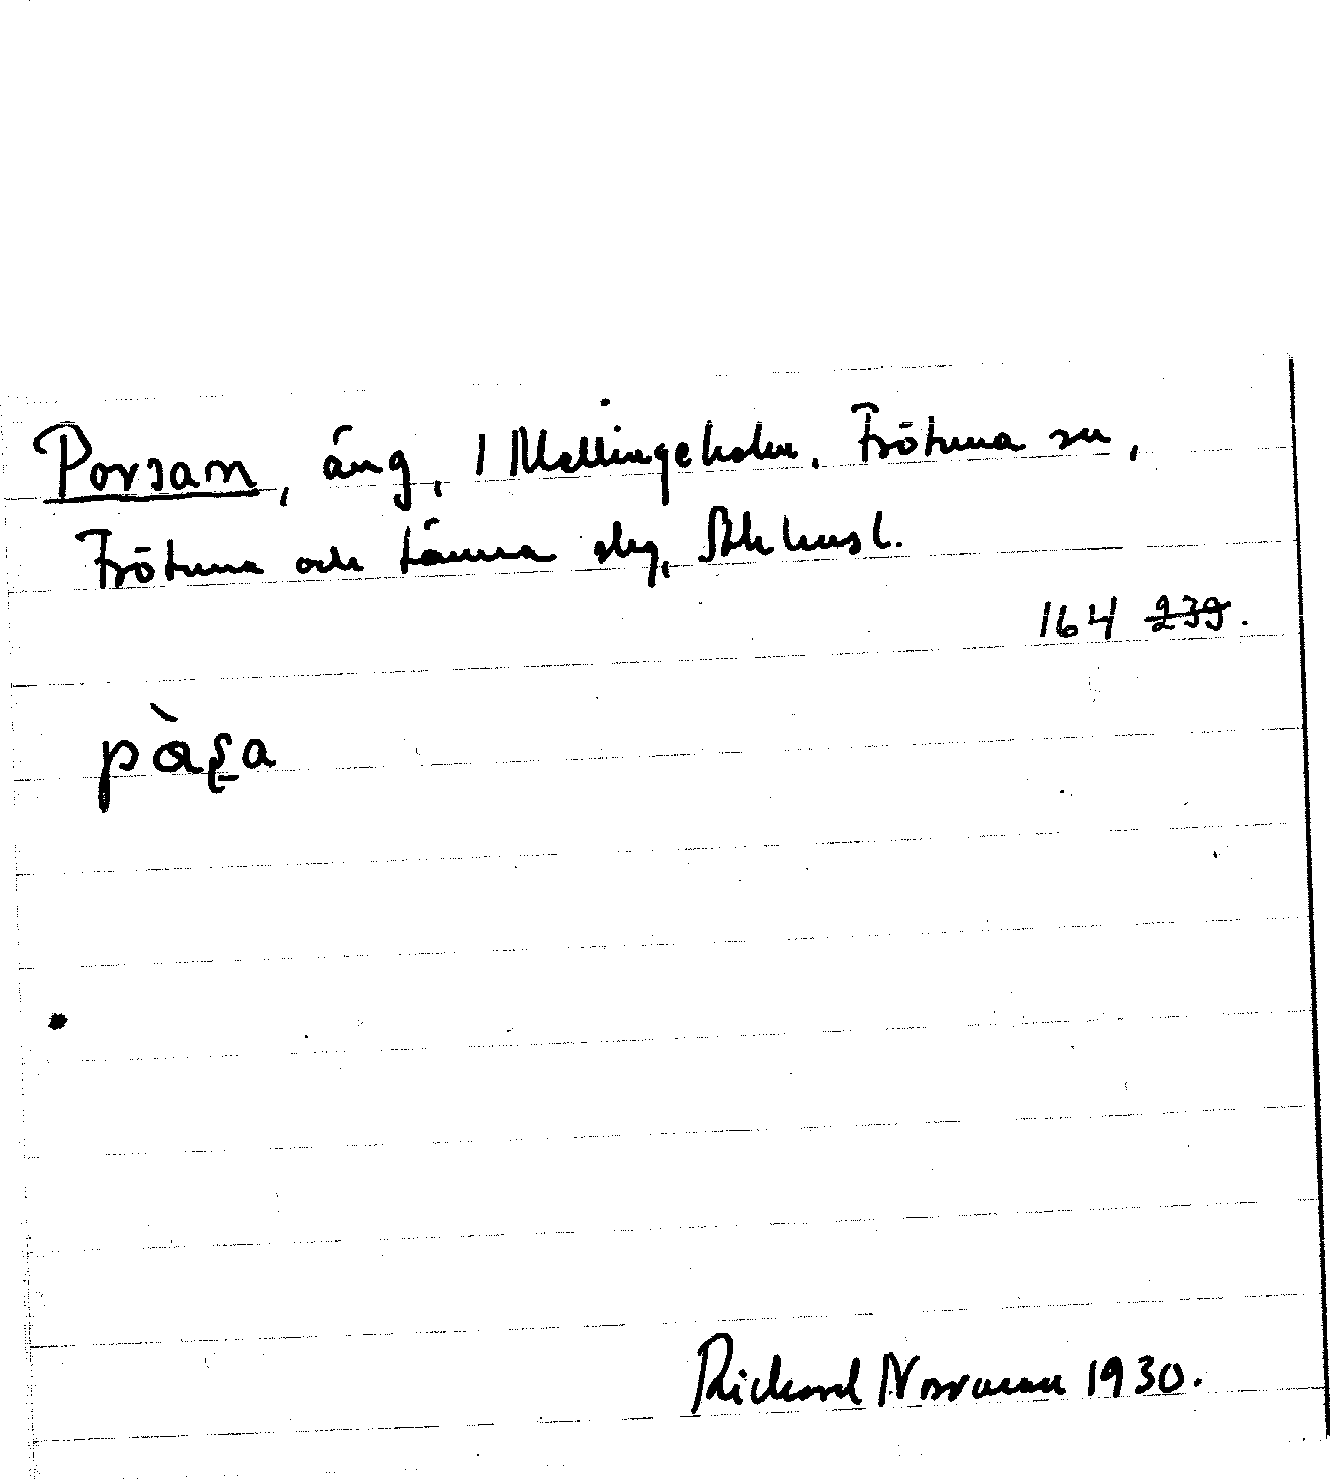 Porsan, äng, 1 Mellingeholm, Frötuna sn,
Frötuna och Länna skg, Sthlms l.
164 239.
pàʂa
Rickard Norrman 1930.